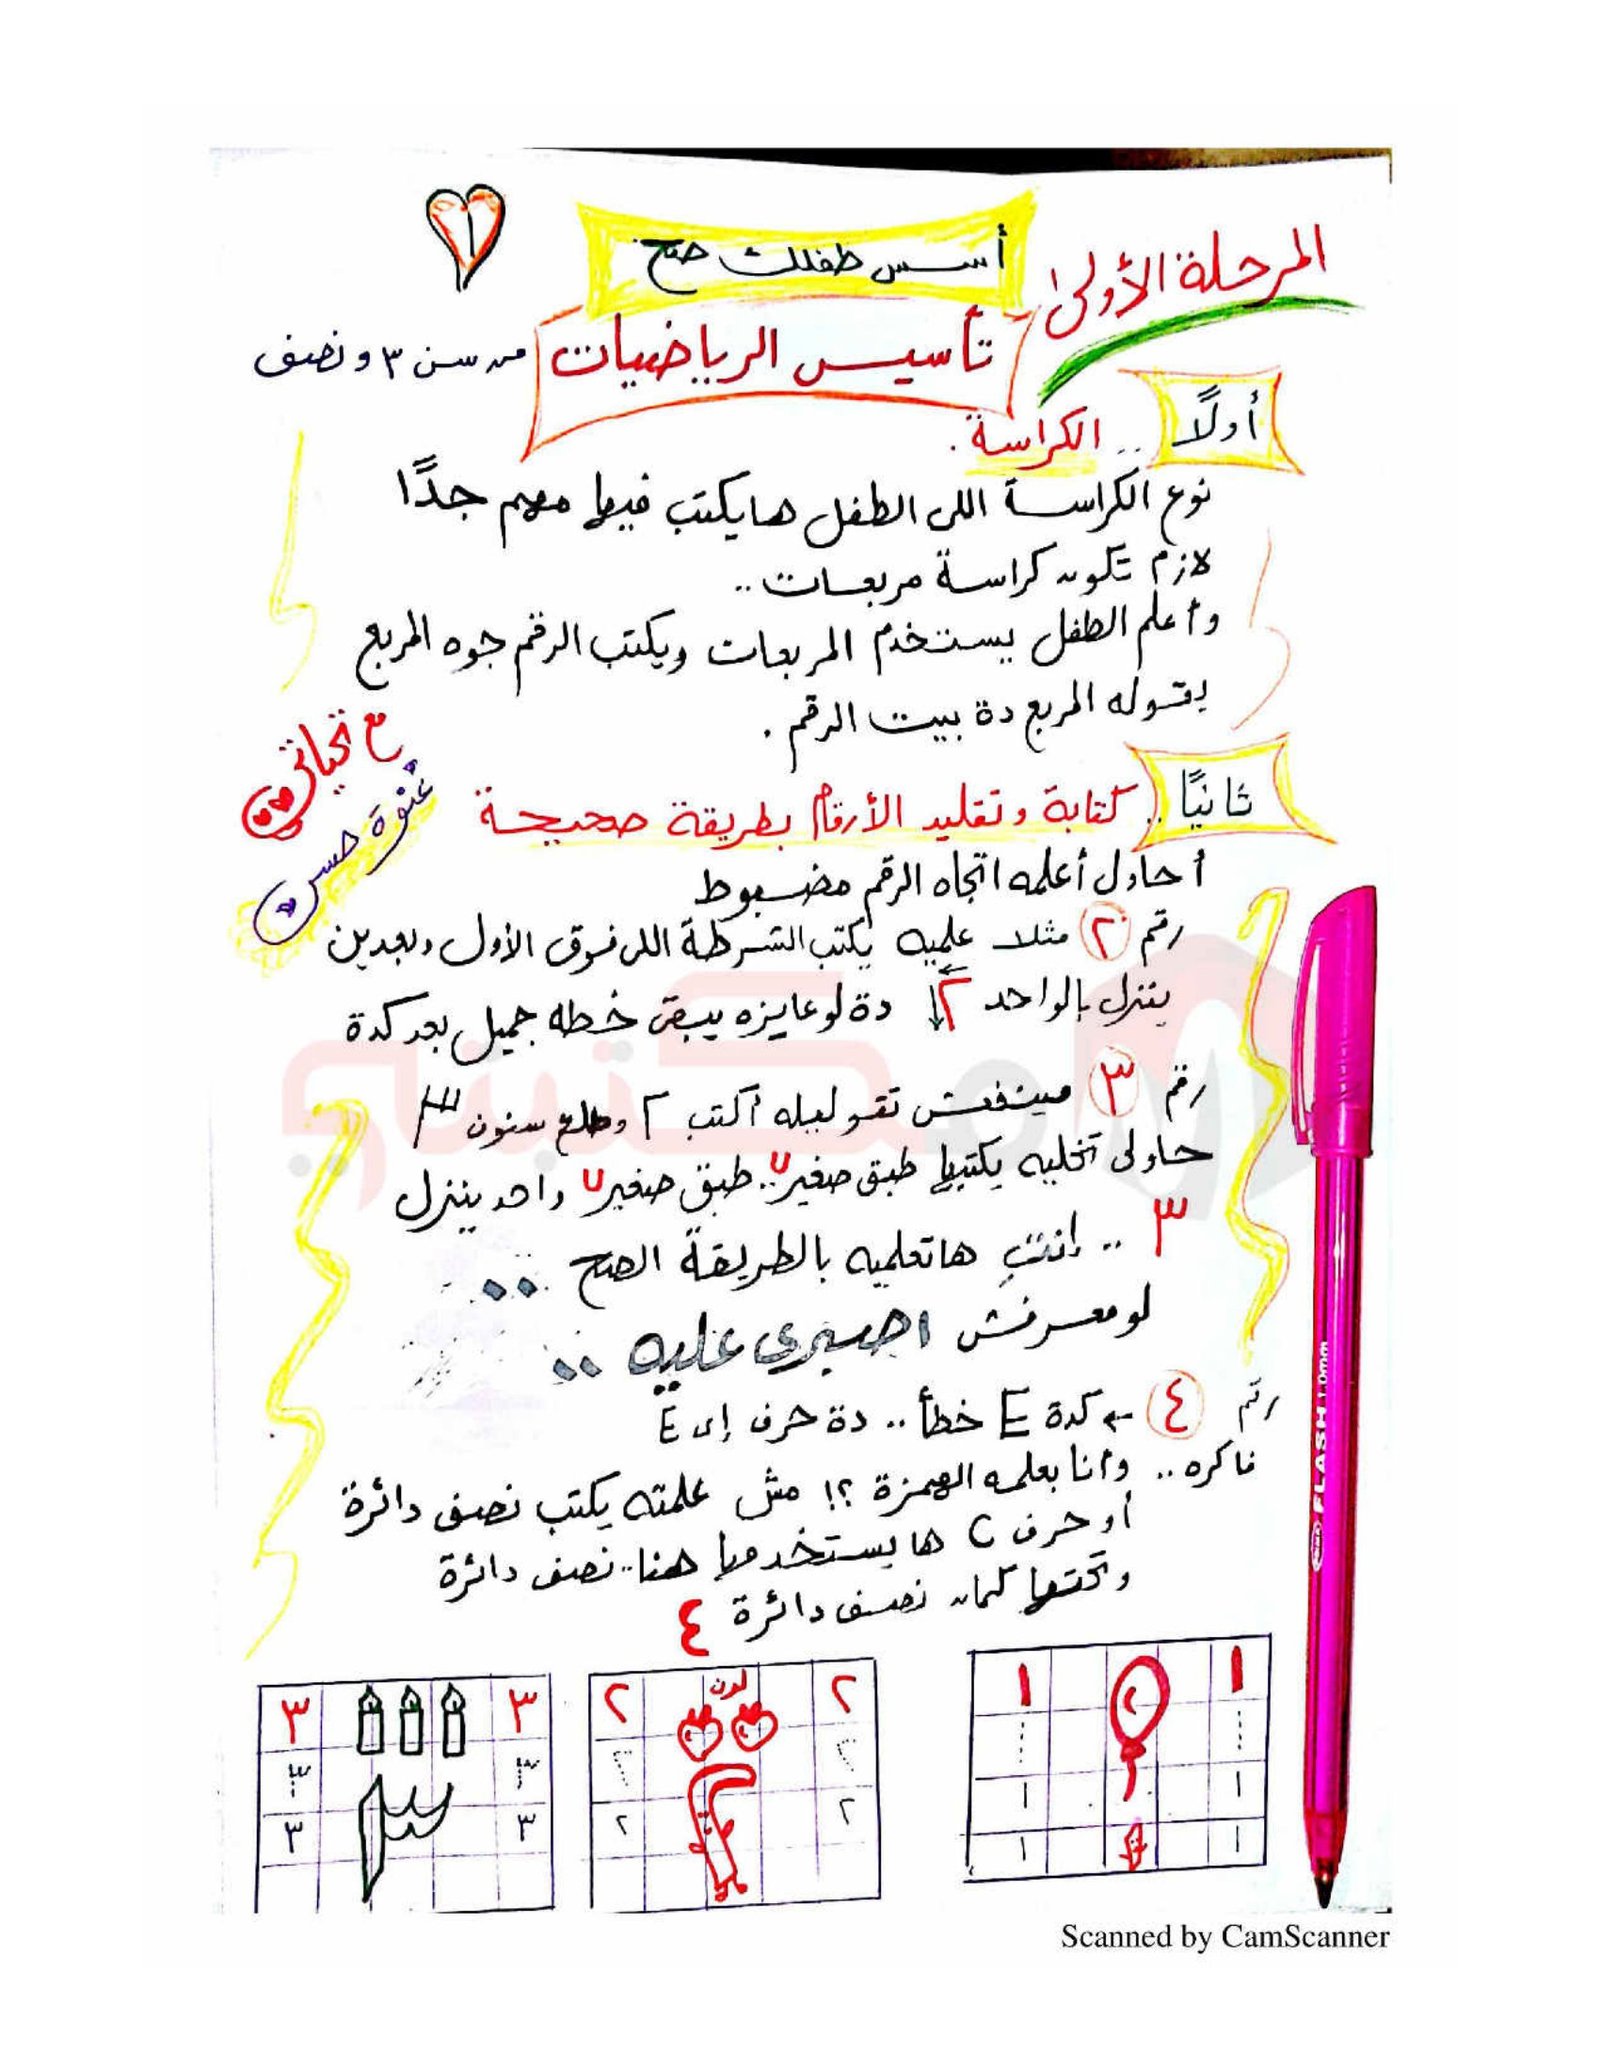 ١
أسس طفلك صح
المرحلة الأولى
تأسيس الرياضيات
من سن ٣ ونصف
أولًا .. الكراسة.
نوع الكراسة اللى الطفل هايكتب فيها مهم جدًا
لازم تكون كراسة مربعات ..
وأعلم الطفل يستخدم المربعات ويكتب الرقم جوه المربع
يقوله المربع دة بيت الرقم .
مع تحياتى
غنوة حسن
ثانيًا .. كتابة وتقليد الأرقام بطريقة صحيحة
أحاول أعلمه اتجاه الرقم مضبوط
رقم ٢ مثلا علميه يكتب الشرطة اللى فوق الأول وبعدين
ينزل بالواحد ٢ دة لو عايزه يبقى خطه جميل بعد كدة
رقم ٣ مينفعش تقوليله أكتب ٢ وطلع سنون ٣
حاولى تخليه يكتبها طبق صغير U .. طبق صغير U واحد ينزل
٣ .. إنتِ هاتعلميه بالطريقة الصح ..
لو معرفش اصبرى عليه ..
رقم ٤ ← كدة E خطأ .. دة حرف إى E
فاكره .. وأنا بعلمه الهمزة ؟! مش علمته يكتب نصف دائرة
أو حرف C هايستخدمها هنا .. نصف دائرة
وتحتها كمان نصف دائرة ٤
١ ١
١ ١
١ ١
١ ١
٢ لون ٢
٢ ٢
٢ ٢
٣ ٣
٣ ٣
٣ ٣
FLASH 1.0mm
مكتبتي
Scanned by CamScanner